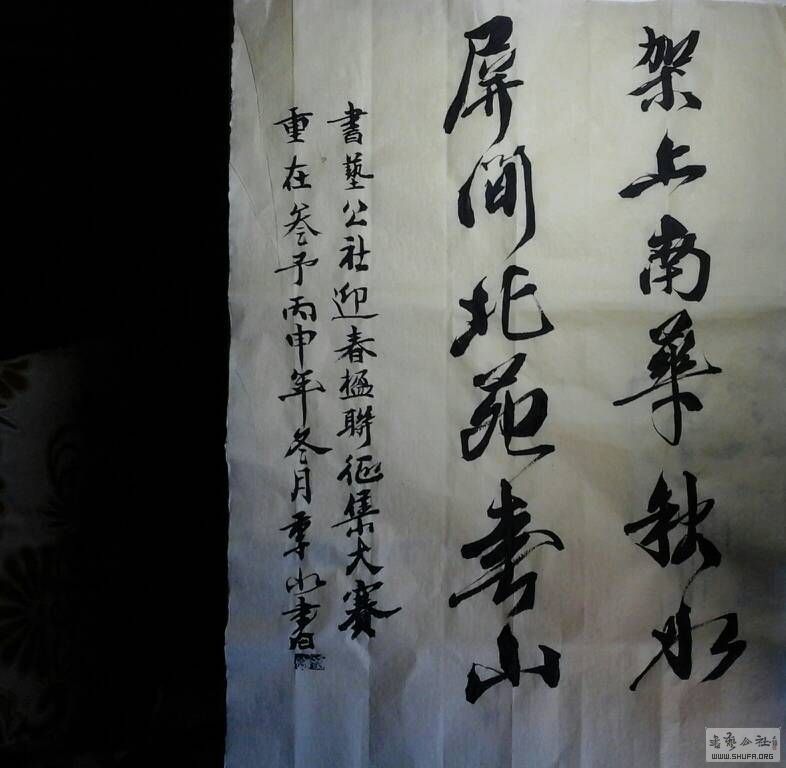 架上南華秋水
屏间北苑春山
書藝公社迎春楹聯征集大賽
重在叄予丙申年冬月季水書
書藝公社
WWW.SHUFA.ORG